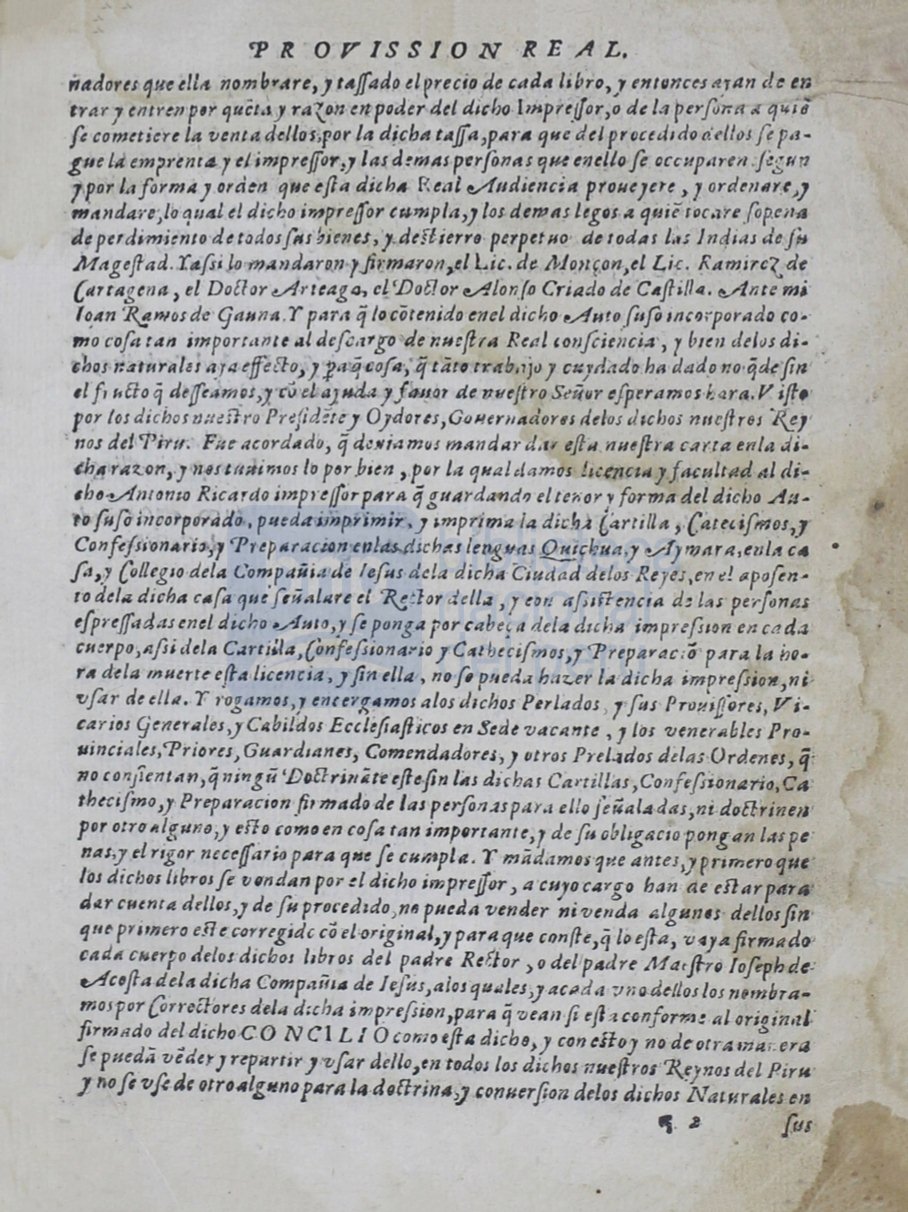 PROVISSION REAL.
ñadores que ella nombrare, y tassado el precio de cada libro, y entonces ayan de en
trar y entren por quēta y razon en poder del dicho Impressor, o de la persona a quiē
se cometiere la venta dellos, por la dicha tassa, para que del procedido dellos se pa-
gue la emprenta y el impressor, y las demas personas que enello se occuparen segun
y por la forma y orden que esta dicha Real Audiencia proueyere, y ordenare, y
mandare, lo qual el dicho impressor cumpla, y los demas legos a quiē tocare sopena
de perdimiento de todos sus bienes, y destierro perpetuo de todas las Indias de su
Magestad. Y assi lo mandaron y firmaron, el Lic. de Monçon, el Lic. Ramirez de
Cartagena, el Doctor Arteaga, el Doctor Alonso Criado de Castilla. Ante mi
Ioan Ramos de Gauna. Y para q̃ lo cōtenido enel dicho Auto suso incorporado co-
mo cosa tan importante al descargo de nuestra Real consciencia, y bien delos di-
chos naturales aya effecto, y pa q̃ cosa, q̃ tāto trabajo y cuydado ha dado no q̃de sin
el fructo q̃ desseamos, y cō el ajuda y fauor de nuestro Señor esperamos hara. Visto
por los dichos nuestro Presidēte y Oydores, Gouernadores delos dichos nuestros Rey
nos del Piru. Fue acordado, q̃ deuiamos mandar dar esta nuestra carta enla di-
cha razon, y nos tuuimos lo por bien, por la qual damos licencia y facultad al di-
cho Antonio Ricardo impressor para q̃ guardando el tenor y forma del dicho Au-
to suso incorporado, pueda imprimir, y imprima la dicha Cartilla, Catecismos, y
Confessionario, y Preparacion enlas dichas lenguas Quichua, y Aymara, enla ca
sa, y Collegio dela Compañia de Iesus dela dicha Ciudad delos Reyes, en el aposen-
to dela dicha casa que señalare el Rector della, y con assistencia de las personas
espressadas enel dicho Auto, y se ponga por cabeça dela dicha impression en cada
cuerpo, assi dela Cartilla, Confessionario y Cathecismos, y Preparaciō para la ho-
ra dela muerte esta licencia, y sin ella, no se pueda hazer la dicha impression, ni
vsar de ella. Y rogamos, y encergamos alos dichos Perlados, y sus Prouissores, Vi-
carios Generales, y Cabildos Ecclesiasticos en Sede vacante, y los venerables Pro-
uinciales, Priores, Guardianes, Comendadores, y otros Prelados delas Ordenes, q̃
no consientan, q̃ ningū Doctrināte este sin las dichas Cartillas, Confessionario, Ca
thecismo, y Preparacion firmado de las personas para ello señaladas, ni doctrinen
por otro alguno, y esto como en cosa tan importante, y de su obligacio pongan las pe
nas, y el rigor necessario para que se cumpla. Y mādamos que antes, y primero que
los dichos libros se vendan por el dicho impressor, a cuyo cargo han de estar para
dar cuenta dellos, y de su procedido, no pueda vender ni venda algunos dellos sin
que primero este corregido cō el original, y para que conste, q̃ lo esta, vaya firmado
cada cuerpo delos dichos libros del padre Rector, o del padre Maestro Ioseph de
Acosta dela dicha Compañia de Iesus, alos quales, y acada vno dellos los nombra-
mos por Correctores dela dicha impression, para q̃ vean si esta conforme al original
firmado del dicho CONCILIO como esta dicho, y con esto y no de otra manera
se puedā vēder y repartir y vsar dello, en todos los dichos nuestros Reynos del Piru
y no se vse de otro alguno para la doctrina, y conuersion delos dichos Naturales en
¶. 2 sus